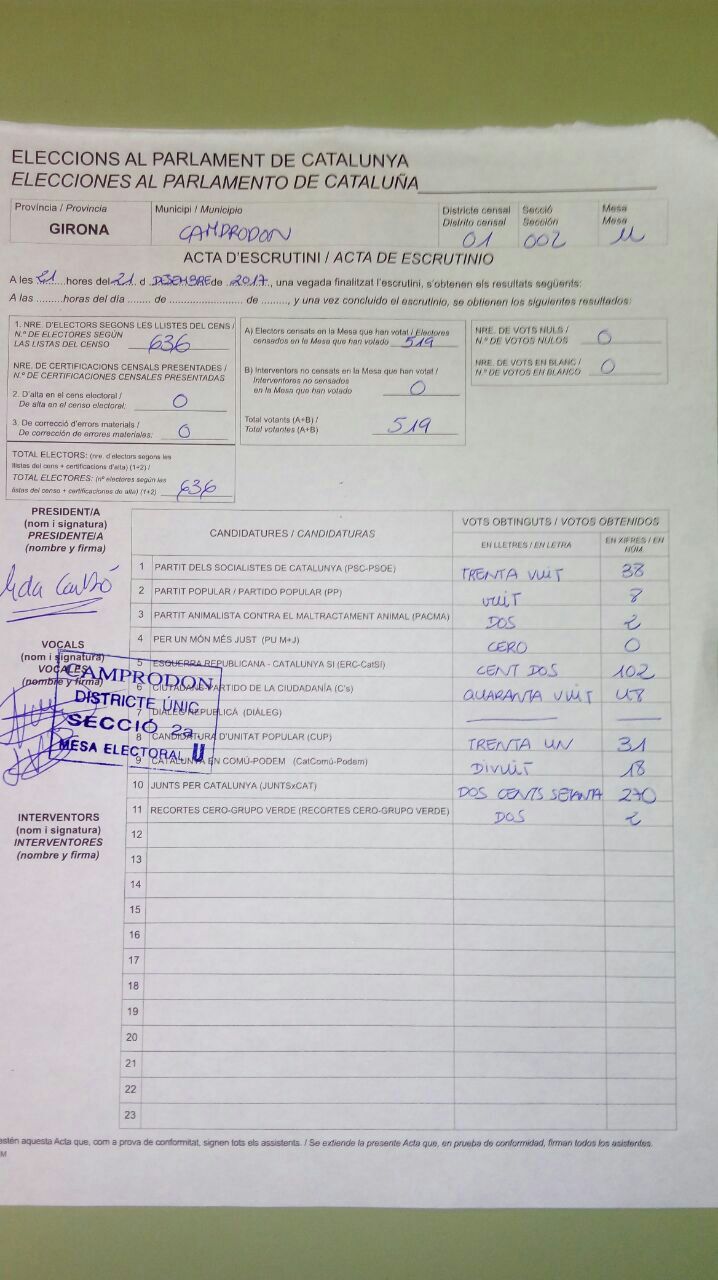 ELECCIONS AL PARLAMENT DE CATALUNYA
ELECCIONES AL PARLAMENTO DE CATALUÑA
Província / Provincia
GIRONA
Municipi / Municipio
CAMPRODON
Districte censal
Distrito censal
01
Secció
Sección
002
Mesa
Mesa
U
ACTA D'ESCRUTINI / ACTA DE ESCRUTINIO
A les 21 hores del 21 d DESEMBRE de 2017, una vegada finalitzat l'escrutini, s'obtenen els resultats següents:
A las .........horas del día ....... de ...................... de ........, y una vez concluido el escrutinio, se obtienen los siguientes resultados:
1. NRE. D'ELECTORS SEGONS LES LLISTES DEL CENS /
N.º DE ELECTORES SEGÚN
LAS LISTAS DEL CENSO 636
NRE. DE CERTIFICACIONS CENSALS PRESENTADES /
N.º DE CERTIFICACIONES CENSALES PRESENTADAS
2. D'alta en el cens electoral /
De alta en el censo electoral: 0
3. De correcció d'errors materials /
De corrección de errores materiales: 0
TOTAL ELECTORS: (nre. d'electors segons les
llistes del cens + certificacions d'alta) (1+2) /
TOTAL ELECTORES: (nº electores según las
listas del censo + certificaciones de alta) (1+2) 636
A) Electors censats en la Mesa que han votat / Electores
censados en la Mesa que han votado 519
B) Interventors no censats en la Mesa que han votat /
Interventores no censados
en la Mesa que han votado 0
Total votants (A+B) /
Total votantes (A+B) 519
NRE. DE VOTS NULS /
N.º DE VOTOS NULOS 0
NRE. DE VOTS EN BLANC /
N.º DE VOTOS EN BLANCO 0
PRESIDENT/A
(nom i signatura)
PRESIDENTE/A
(nombre y firma)
VOCALS
(nom i signatura)
VOCALES
(nombre y firma)
CAMPRODON
DISTRICTE UNIC
SECCIÓ 2a
MESA ELECTORAL U
INTERVENTORS
(nom i signatura)
INTERVENTORES
(nombre y firma)
CANDIDATURES / CANDIDATURAS
VOTS OBTINGUTS / VOTOS OBTENIDOS
EN LLETRES / EN LETRA
EN XIFRES / EN NÚM.
1 PARTIT DELS SOCIALISTES DE CATALUNYA (PSC-PSOE) TRENTA VUIT 38
2 PARTIT POPULAR / PARTIDO POPULAR (PP) VUIT 8
3 PARTIT ANIMALISTA CONTRA EL MALTRACTAMENT ANIMAL (PACMA) DOS 2
4 PER UN MÓN MÉS JUST (PU M+J) CERO 0
5 ESQUERRA REPUBLICANA - CATALUNYA SI (ERC-CatSí) CENT DOS 102
6 CIUTADANS-PARTIDO DE LA CIUDADANÍA (C's) QUARANTA VUIT 48
7 DIÀLEG REPUBLICÀ (DIÀLEG)
8 CANDIDATURA D'UNITAT POPULAR (CUP) TRENTA UN 31
9 CATALUNYA EN COMÚ-PODEM (CatComú-Podem) DIVUIT 18
10 JUNTS PER CATALUNYA (JUNTSxCAT) DOS CENTS SETANTA 270
11 RECORTES CERO-GRUPO VERDE (RECORTES CERO-GRUPO VERDE) DOS 2
12
13
14
15
16
17
18
19
20
21
22
23
aquesta Acta que, com a prova de conformitat, signen tots els assistents. / Se extiende la presente Acta que, en prueba de conformidad, firman todos los asistentes.